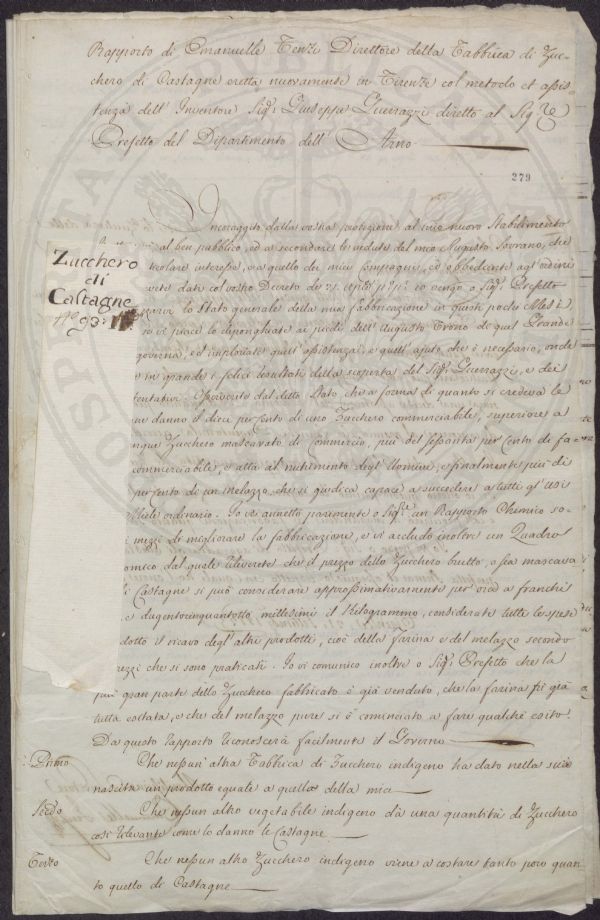 Rapporto di Emanuelle Tenzi Direttore della Fabbrica di Zuc-
chero di Castagne eretta nuovamente in Firenze col metodo et assis-
tenza dell' Inventore Sig.r Giuseppe Guerrazzi diretto al Sig.re
Prefetto del Dipartimento dell' Arno
279
Incoraggito dalla vostra protezione al mio nuovo Stabilimento
al ben pubblico, ed a secondare le vedute del mio Augusto Sovrano, che
ticolare interesse, e a quello dei miei compagni, ed obbediente agl' ordini
vete dati col vostro Decreto de io vengo o Sig.r Prefetto
lo Stato generale della mia fabbricazione in questi pochi Mesi
vi piace lo deponghiate ai piedi dell' Augusto Trono do quel Grande
governa, ed imploriate quell' assistenza, e quell' ajuto che è necessario, onde
in grande i felici resultati della scoperta del Sig.r Guerrazzi, e dei
tentativi. Osserverete dal detto Stato, che a forma di quanto si credeva le
ne danno il dieci per cento di uno Zucchero commerciabile, superiore a
unque Zucchero mascavato di commercio, più del sessanta per cento de fa-
commerciabile, e atta al nutrimento degl' Uomini, e finalmente più di
per cento di un melazzo, che si giudica capace a succedere a tutti gl' usi
miele ordinario. Io vi annetto parimente o Sig.re un Rapporto Chimico so-
i mezzi di migliorare la fabbricazione, e vi accludo inoltre un Quadro
omico dal quale rileverete che il prezzo dello Zucchero brutto, o sia mascava
di Castagne si può considerare approssimativamente per ora a franchi
e dugentocinquantotto millesimi il Kilogrammo, considerate tutte le spese
dotto il ricavo degl' altri prodotti, cioè della farina e del melazzo secondo
rezzi che si sono praticati. Io vi comunico inoltre o Sig.r Prefetto che la
più gran parte dello Zucchero fabbricato è già venduto, che la farina fù già
tutta esitata, e che del melazzo pure si è cominciato a fare qualche esito.
Da questo rapporto riconoscerà facilmente il Governo
Primo Che nessun' altra Fabbrica di Zucchero indigeno ha dato nella sua
nascita un prodotto eguale a quello della mia
Secdo Che nessun altro vegetabile indigeno dà una quantità di Zucchero
così rilevante come lo danno le Castagne
Terzo Che nessun altro Zucchero indigeno viene a costare tanto poco quan-
to quello di Castagne
Zucchero
di
Castagne
N.o 93: